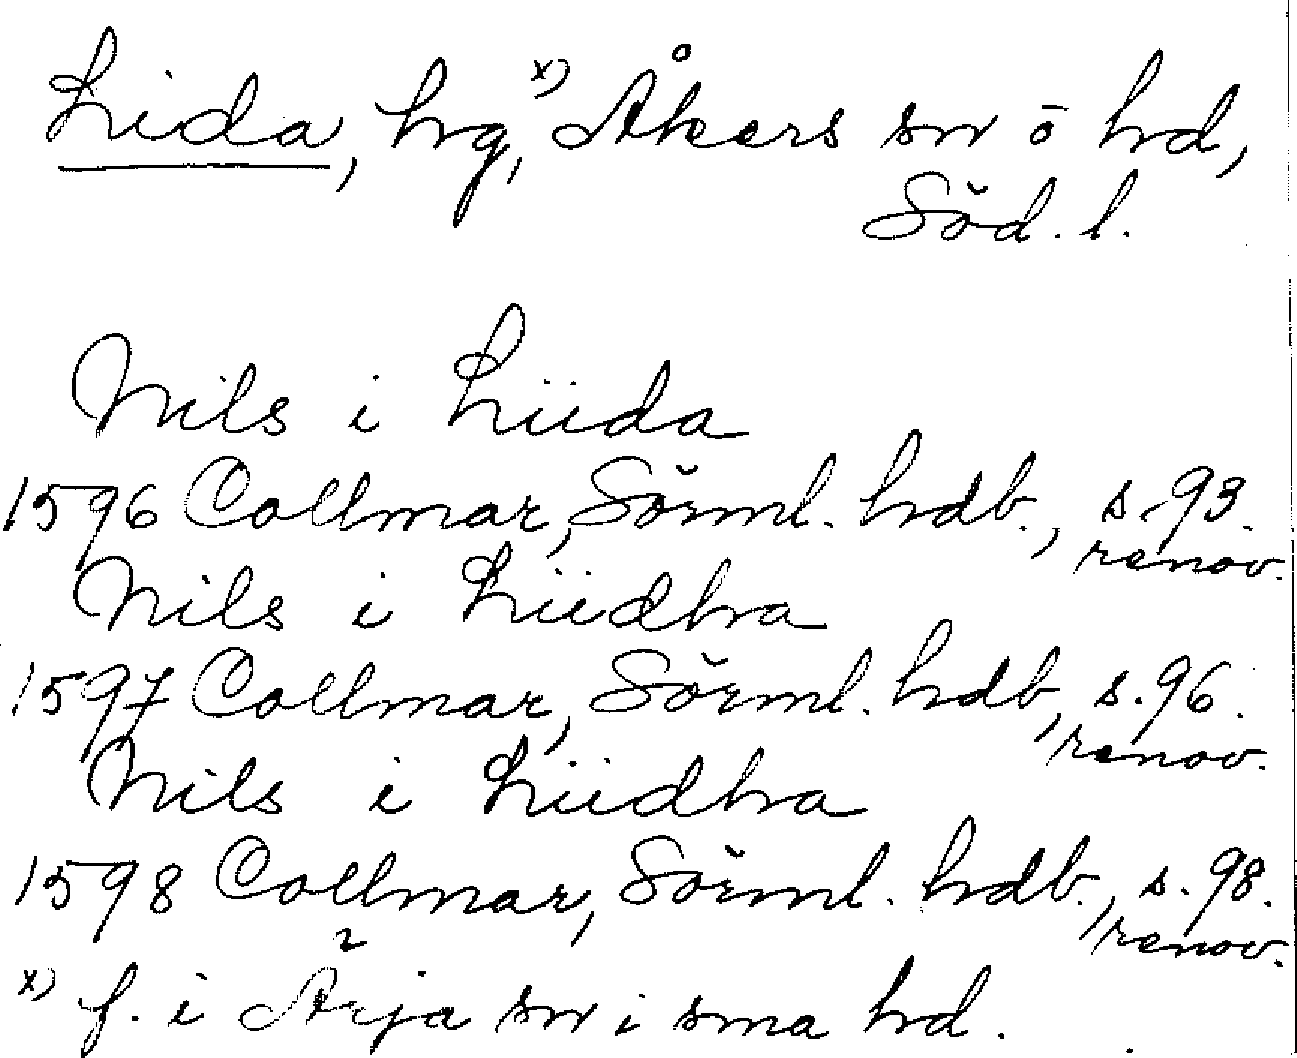 Lida, hg,ˣ⁾ Åkers sn o hd,
Söd. l.
Nils i Liida
1596 Collmar, Sörml. hdb., s. 93.
renov.
Nils i Liidha
1597 Collmar, Sörml. hdb, s. 96.
renov.
Nils i Liidha
1598 Collmar, Sörml. hdb., s. 98.
renov.
x) f. i Ärja sn i sma hd.